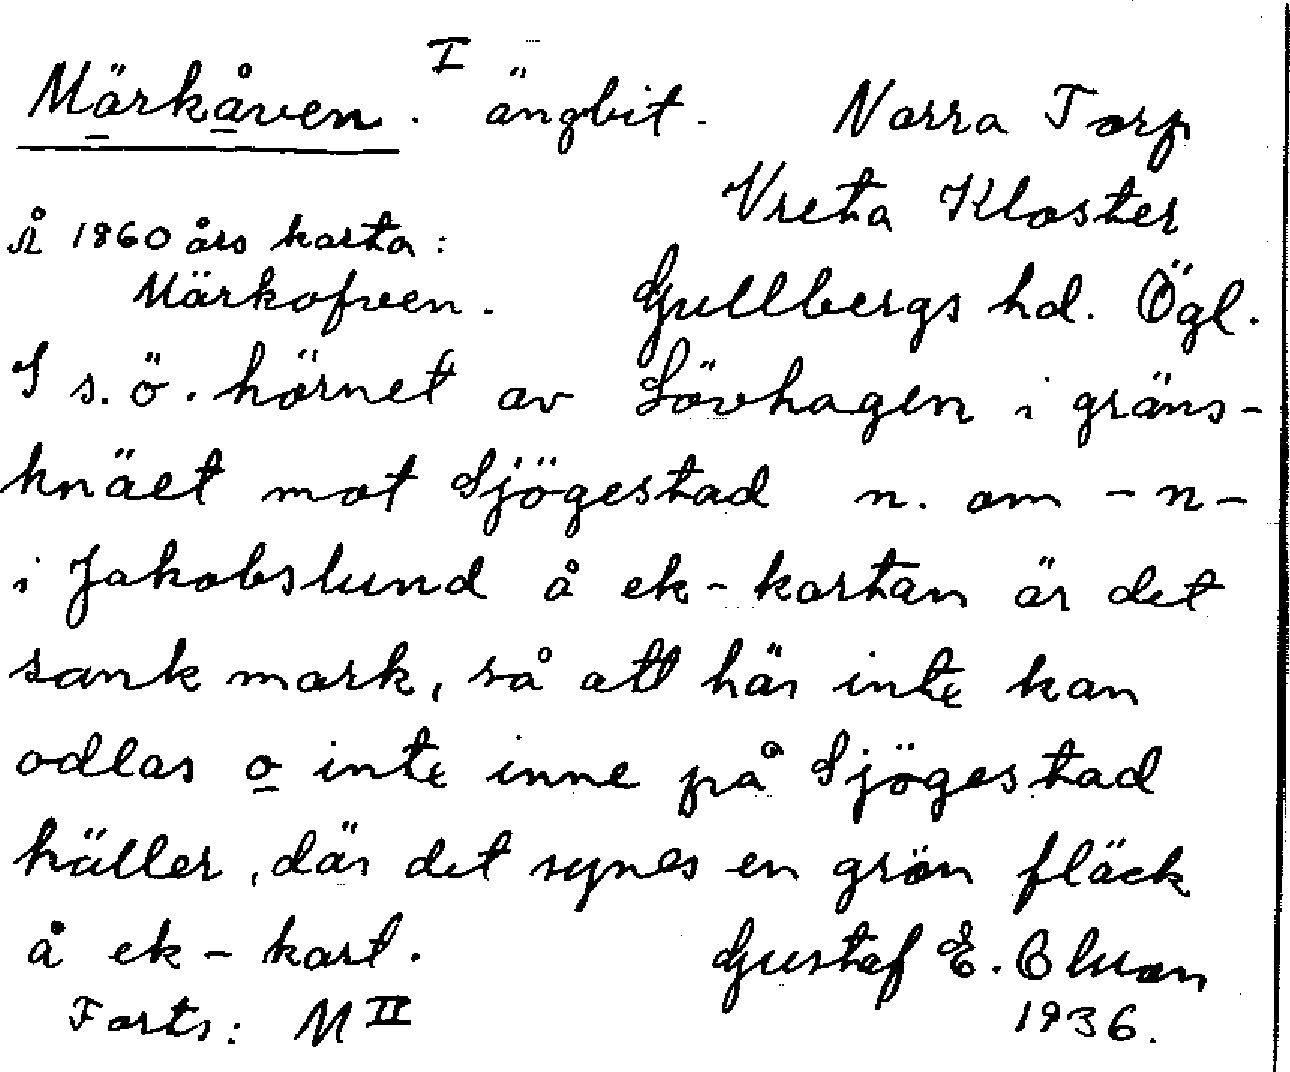 Märkåven. I ängbit. Norra Torp
Vreta Kloster
Å 1860 års karta:
Märkofven. Gullbergs hd. Ögl.
I s.ö. hörnet av Lövhagen i gräns-
knäet mot Sjögestad n. om -n-
i Jakobslund å ek-kartan är det
sank mark, så att här inte kan
odlas o inte inne på Sjögestad
häller, där det synes en grön fläck
å ek-kart. Gustaf E.
Forts: M II 1936.